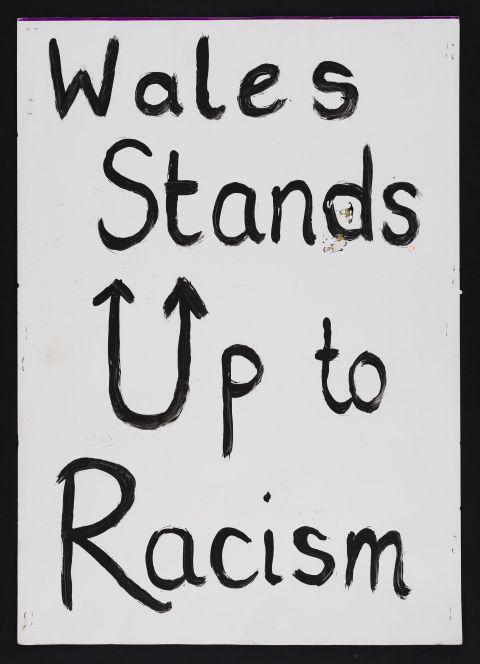 Wales
Stands
Up to
Racism